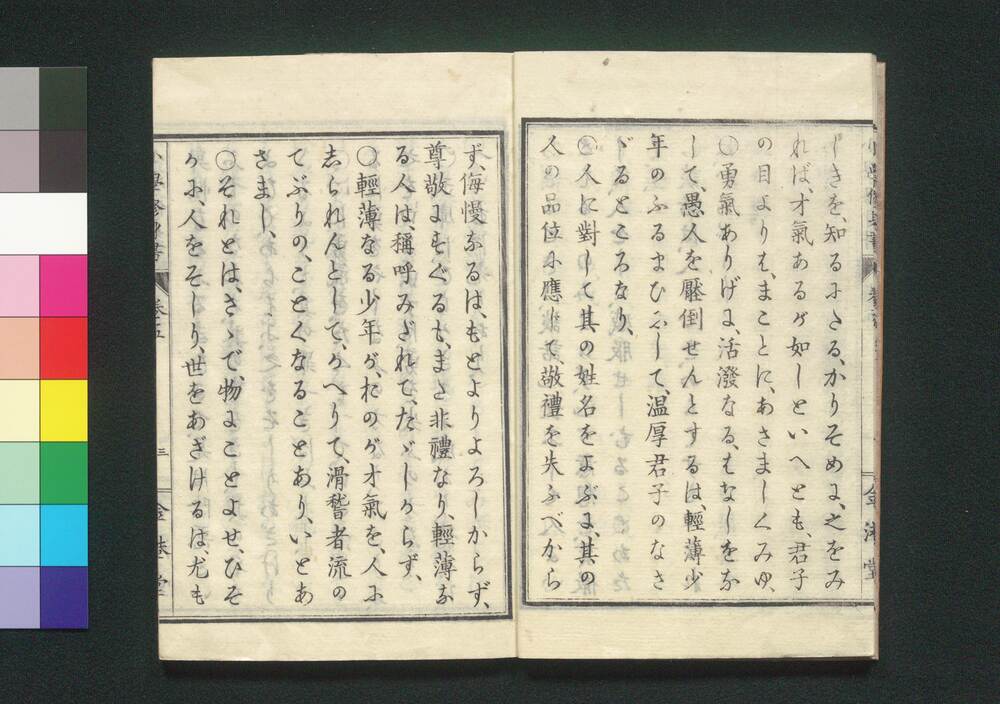 じきを、知るにたる、かりそめに、之をみ
れば、才氣あるが如しといへとも、君子
の目よりも、まことに、あさましくみゆ、
〇勇氣ありげに、活潑なる、はなしをな
して、愚人を壓倒せんとするは、輕薄少
年のふるまひにして、温厚君子のなさ
ゞるところなり、
〇人に對して其の姓名をよぶに、其の
人の品位に應じて、敬禮を失ふべから
ず、侮慢なるは、もとよりよろしからず、
尊敬にすぐるも、また非禮なり、輕薄な
る人は、稱呼みだれて、たゞしからず、
〇輕薄なる少年が、おのが才氣を、人に
志られんとして、かへりて、滑稽者流の
てぶりの、ことくなることあり、いとあ
さまし、
〇それとは、さゝで、物にことよせ、ひそ
かに、人をそしり、世をあざけるは、尤も
小學修身書
卷五
三
金港堂